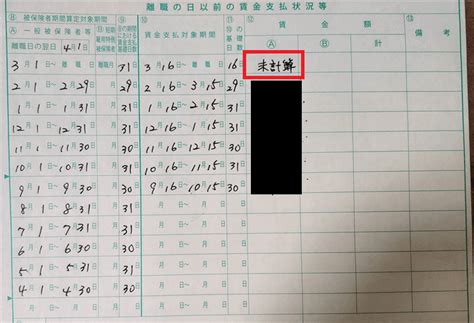 離職の日以前の賃金支払状況等
⑧ 被保険者期間算定対象期間
Ⓐ 一般被保険者等
⑨
⑩
賃金支払対象期間
⑪
⑩の基礎日数
⑫
賃金額
Ⓐ Ⓑ 計
⑬
備考
離職日の翌日 4月1日
3月1日〜離職日 31日 3月16日〜離職日 16日 未計算
2月1日〜2月29日 29日 2月16日〜3月15日 29日
1月1日〜1月31日 31日 1月16日〜2月15日 31日
12月1日〜12月31日 31日 12月16日〜1月15日 31日
11月1日〜11月30日 30日 11月16日〜12月15日 30日
10月1日〜10月31日 31日 10月16日〜11月15日 31日
9月1日〜9月30日 30日 9月16日〜10月15日 30日
8月1日〜8月31日 31日 月日〜月日 日
7月1日〜7月31日 31日 月日〜月日 日
6月1日〜6月30日 30日 月日〜月日 日
5月1日〜5月31日 31日 月日〜月日 日
4月1日〜4月30日 30日 月日〜月日 日
月日〜月日 日 月日〜月日 日